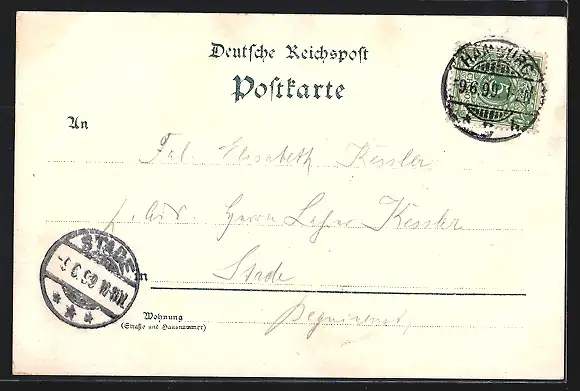 Deutsche Reichspost
Postkarte
HAMBURG
9.6.99
An
Frl. Elisabeth Kessler
p. Adr. Herrn Kessler
STADE
9.6.99
in
Stade
Wohnung
(Straße und Hausnummer)